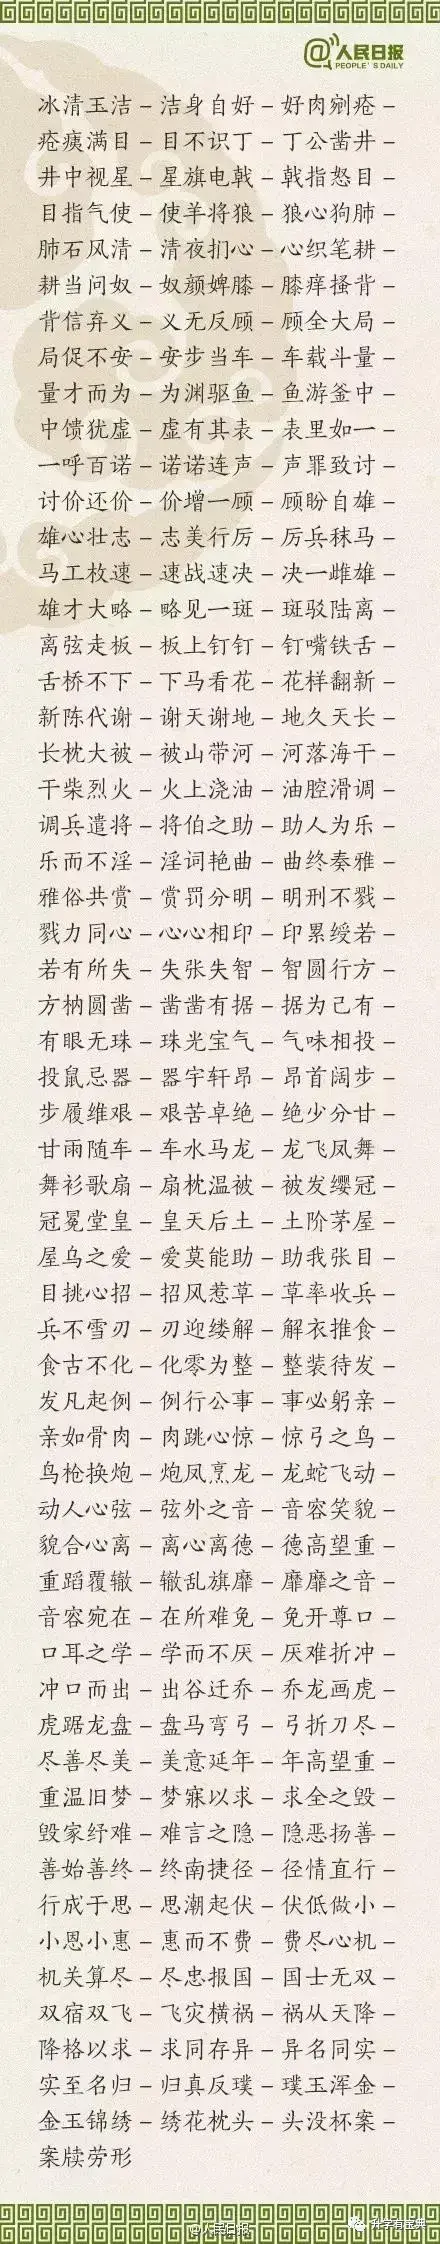 @人民日报
PEOPLE'S DAILY
冰清玉洁－洁身自好－好肉剜疮－
疮痍满目－目不识丁－丁公凿井－
井中视星－星旗电戟－戟指怒目－
目指气使－使羊将狼－狼心狗肺－
肺石风清－清夜扪心－心织笔耕－
耕当问奴－奴颜婢膝－膝痒搔背－
背信弃义－义无反顾－顾全大局－
局促不安－安步当车－车载斗量－
量才而为－为渊驱鱼－鱼游釜中－
中馈犹虚－虚有其表－表里如一－
一呼百诺－诺诺连声－声罪致讨－
讨价还价－价增一顾－顾盼自雄－
雄心壮志－志美行厉－厉兵秣马－
马工枚速－速战速决－决一雌雄－
雄才大略－略见一斑－斑驳陆离－
离弦走板－板上钉钉－钉嘴铁舌－
舌桥不下－下马看花－花样翻新－
新陈代谢－谢天谢地－地久天长－
长枕大被－被山带河－河落海干－
干柴烈火－火上浇油－油腔滑调－
调兵遣将－将伯之助－助人为乐－
乐而不淫－淫词艳曲－曲终奏雅－
雅俗共赏－赏罚分明－明刑不戮－
戮力同心－心心相印－印累绶若－
若有所失－失张失智－智圆行方－
方枘圆凿－凿凿有据－据为己有－
有眼无珠－珠光宝气－气味相投－
投鼠忌器－器宇轩昂－昂首阔步－
步履维艰－艰苦卓绝－绝少分甘－
甘雨随车－车水马龙－龙飞凤舞－
舞衫歌扇－扇枕温被－被发缨冠－
冠冕堂皇－皇天后土－土阶茅屋－
屋乌之爱－爱莫能助－助我张目－
目挑心招－招风惹草－草率收兵－
兵不雪刃－刃迎缕解－解衣推食－
食古不化－化零为整－整装待发－
发凡起例－例行公事－事必躬亲－
亲如骨肉－肉跳心惊－惊弓之鸟－
鸟枪换炮－炮凤烹龙－龙蛇飞动－
动人心弦－弦外之音－音容笑貌－
貌合心离－离心离德－德高望重－
重蹈覆辙－辙乱旗靡－靡靡之音－
音容宛在－在所难免－免开尊口－
口耳之学－学而不厌－厌难折冲－
冲口而出－出谷迁乔－乔龙画虎－
虎踞龙盘－盘马弯弓－弓折刀尽－
尽善尽美－美意延年－年高望重－
重温旧梦－梦寐以求－求全之毁－
毁家纾难－难言之隐－隐恶扬善－
善始善终－终南捷径－径情直行－
行成于思－思潮起伏－伏低做小－
小恩小惠－惠而不费－费尽心机－
机关算尽－尽忠报国－国士无双－
双宿双飞－飞灾横祸－祸从天降－
降格以求－求同存异－异名同实－
实至名归－归真反璞－璞玉浑金－
金玉锦绣－绣花枕头－头没杯案－
案牍劳形
@人民日报
升学有宝典